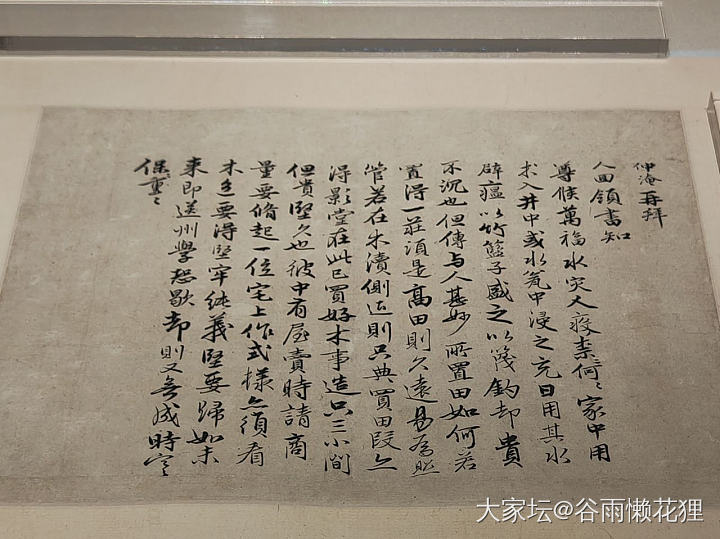 仲淹再拜
人回領書知
尊候萬福水災大疫柰何〻家中用
朮入井中或水瓮中浸之充日用其水
辟瘟以竹籃子盛之以篾釣却貴
不沉也但傳与人甚妙所置田如何若
置得一莊須是高田則久遠易為照
管若在木瀆側近則只典買田段亦
得影堂在此已買好木事造只三小間
但貴堅久也彼中有屋賣時請商
量要脩起一位宅上作式樣亦須看
木色要得堅牢純義堅要歸如未
来即送州學恐歇却則又無成時
保重〻
大家坛@谷雨懒花狸